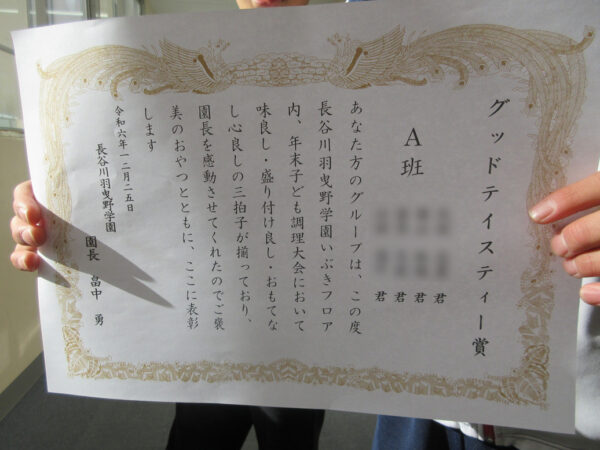 グッドテイスティー賞
A班
君
君
君
君
あなた方のグループは、この度
長谷川羽曳野学園いぶきフロア
内、年末子ども調理大会において
味良し・盛り付け良し・おもてな
し心良しの三拍子が揃っており、
園長を感動させてくれたのでご褒
美のおやつとともに、ここに表彰
します
令和六年一二月二五日
長谷川羽曳野学園
園長 畠中 勇